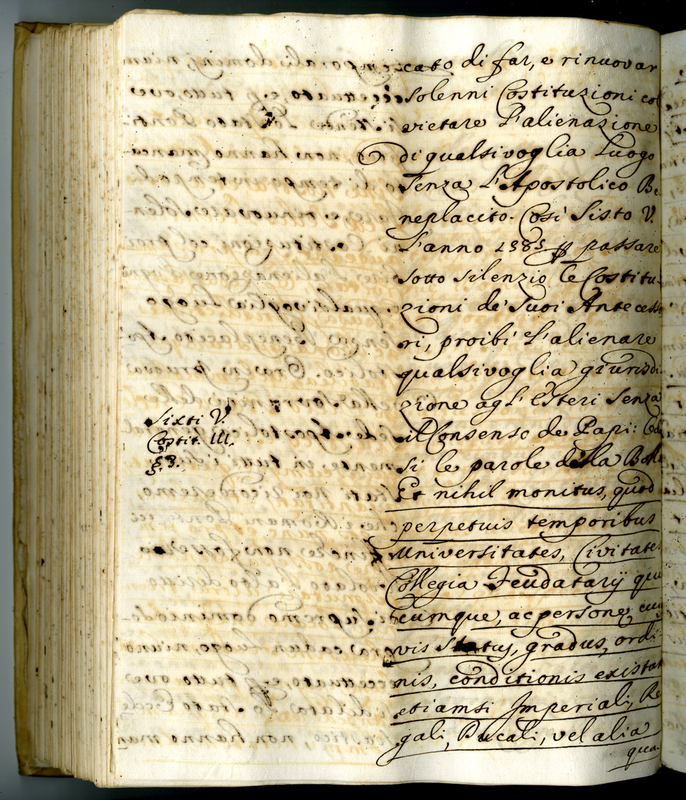 cato di far, e rinuovar
Solenni Costituzioni col
vietare l'alienazione
di qualsivoglia Luogo
senza l'Apostolico Be
neplacito. Così Sisto V.
l'anno 1585 passare
sotto silenzio le Costitu-
zioni de' Suoi Antecess
ri, proibì l'alienare
qualsivoglia giurisdi
zione agl'Esteri Senza
il Consenso de Papi: Co
Sixti V.
Costit. III.
§. 3.
si le parole della Bolla
Et nihil monitus, quod
perpetuis temporibus
Universitates, Civitates
Collegia Feudatarÿ qui
cumque, ac persone, cuj
vis status, gradus, ordi
nis, conditionis existat
etiamsi Imperiali, Re
gali, Ducali, vel alia
qua